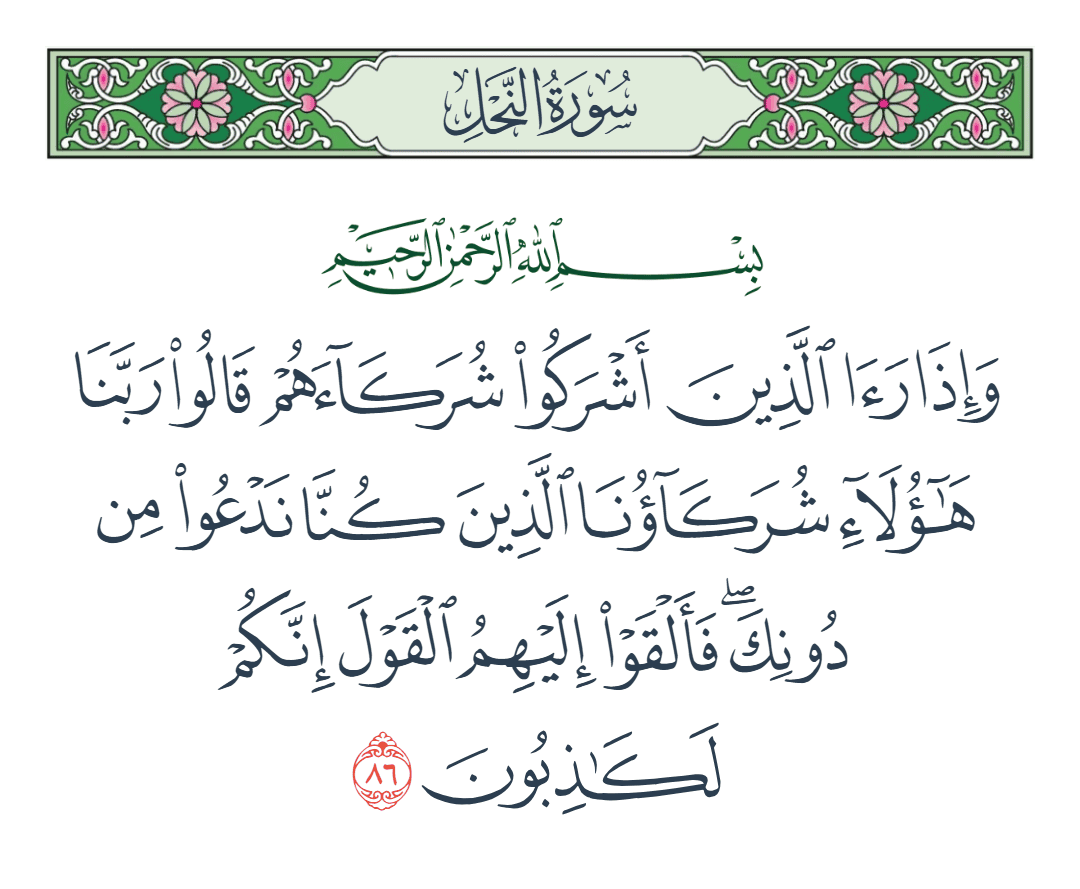 سُورَةُ النَّحْلِ
بِسْمِ ٱللَّهِ ٱلرَّحْمَٰنِ ٱلرَّحِيمِ
وَإِذَا رَءَا ٱلَّذِينَ أَشْرَكُوا۟ شُرَكَآءَهُمْ قَالُوا۟ رَبَّنَا
هَٰٓؤُلَآءِ شُرَكَآؤُنَا ٱلَّذِينَ كُنَّا نَدْعُوا۟ مِن
دُونِكَ ۖ فَأَلْقَوْا۟ إِلَيْهِمُ ٱلْقَوْلَ إِنَّكُمْ
لَكَٰذِبُونَ ٨٦